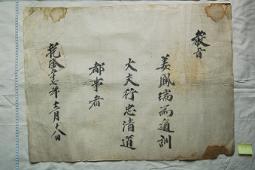 教旨
姜鳳瑞爲通訓
大夫行忠淸道
都事者
乾隆年月八日